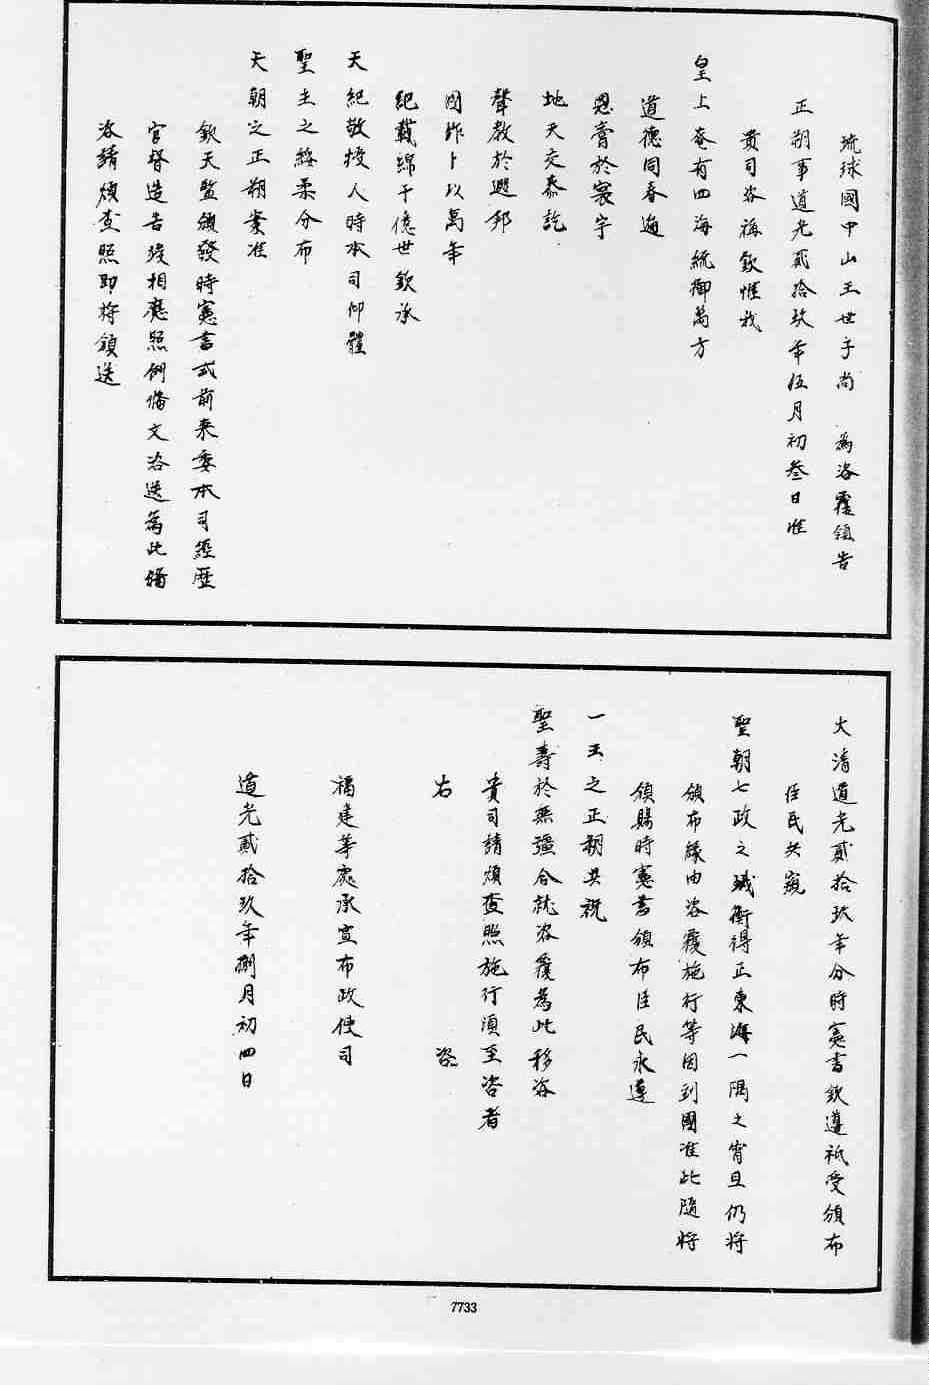 琉球國中山王世子尚　為咨覆領告
正朔事道光貳拾玖年伍月初叁日准
貴司咨稱欽惟我
皇上奄有四海統御萬方
道德同春遍
恩膏於寰宇
地天交泰訖
聲教於遐邦
國祚卜以萬年
紀載綿于億世欽承
天紀敬授人時本司仰體
聖主之綏柔分布
天朝之正朔案准
欽天監頒發時憲書式前來委本司經歷
官督造告竣相應照例備文咨送為此備
咨請煩查照即將領送
大清道光貳拾玖年分時憲書欽遵祇受頒布
臣民共窺
聖朝七政之璣衡得正東海一隅之宵旦仍將
頒布緣由咨覆施行等因到國准此隨將
頒賜時憲書頒布臣民永遵
一王之正朔共祝
聖壽於無疆合就咨覆為此移咨
貴司請煩查照施行須至咨者
右　咨
福建等處承宣布政使司
道光貳拾玖年捌月初四日
7733